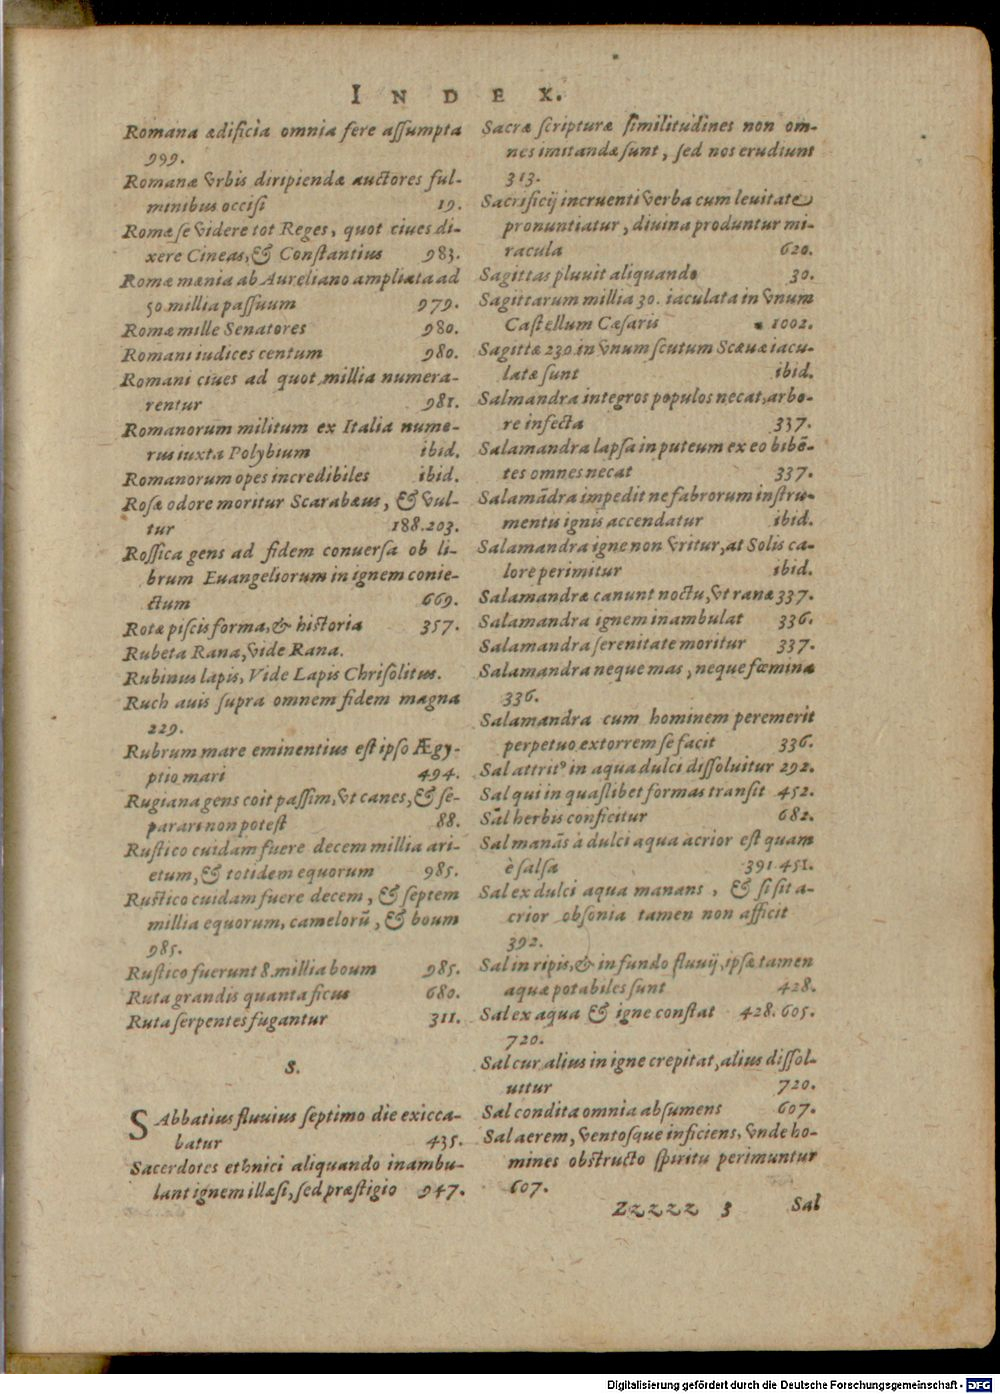 INDEX.
Romana ædificia omnia fere aſſumpta
999.
Romanæ vrbis diripiendæ auctores ful-
minibus occiſi 19.
Romæ ſe videre tot Reges, quot ciues di-
xere Cineas, & Conſtantius 983.
Romæ mœnia ab Aureliano ampliata ad
50 millia paſſuum 979.
Romæ mille Senatores 980.
Romani iudices centum 980.
Romani ciues ad quot millia numera-
rentur 981.
Romanorum militum ex Italia nume-
rus iuxta Polybium ibid.
Romanorum opes incredibiles ibid.
Roſæ odore moritur Scarabæus, & vul-
tur 188.203.
Roſſica gens ad fidem conuerſa ob li-
brum Euangeliorum in ignem conie-
ctum 669.
Rotæ piſcis forma, & hiſtoria 357.
Rubeta Rana, vide Rana.
Rubinus lapis, Vide Lapis Chriſolitus.
Ruch auis ſupra omnem fidem magna
229.
Rubrum mare eminentius eſt ipſo Ægy-
ptio mari 494.
Rugiana gens coit paſſim, vt canes, & ſe-
parari non poteſt 88.
Ruſtico cuidam fuere decem millia ari-
etum, & totidem equorum 985.
Ruſtico cuidam fuere decem, & ſeptem
millia equorum, camelorũ, & boum
985.
Ruſtico fuerunt 8. millia boum 985.
Ruta grandis quanta ficus 680.
Ruta ſerpentes fugantur 311.
S.
SAbbatius fluuius ſeptimo die exicca-
batur 435.
Sacerdotes ethnici aliquando inambu-
lant ignem illæſi, ſed præſtigio 947.
Sacræ ſcripturæ ſimilitudines non om-
nes imitandæ ſunt, ſed nos erudiunt
313.
Sacrificij incruenti verba cum leuitate
pronuntiatur, diuina produntur mi-
racula 620.
Sagittas pluuit aliquando 30.
Sagittarum millia 30. iaculata in vnum
Caſtellum Cæſaris 1002.
Sagittæ 230. in vnum ſcutum Scæuæ iacu-
latæ ſunt ibid.
Salmandra integros populos necat, arbo-
re infecta 337.
Salamandra lapſa in puteum ex eo bibẽ-
tes omnes necat 337.
Salamãdra impedit ne fabrorum inſtru-
mentis ignis accendatur ibid.
Salamandra igne non vritur, at Solis ca-
lore perimitur ibid.
Salamandræ canunt noctu, vt ranæ 337.
Salamandra ignem inambulat 336.
Salamandra ſerenitate moritur 337.
Salamandra neque mas, neque fœmina
336.
Salamandra cum hominem peremerit
perpetuo extorrem ſe facit 336.
Sal attritꝰ in aqua dulci diſſoluitur 292.
Sal qui in quaſlibet formas tranſit 452.
Sal herbis conficitur 682.
Sal manãs à dulci aqua acrior eſt quam
è ſalſa 391.451.
Sal ex dulci aqua manans, & ſi ſit a-
crior obſonia tamen non afficit
392.
Sal in ripis, & in fundo fluuij, ipſæ tamen
aquæ potabiles ſunt 428.
Sal ex aqua & igne conſtat 428. 605.
720.
Sal cur alius in igne crepitat, alius diſſol-
uitur 720.
Sal condita omnia abſumens 607.
Sal aerem, ventoſque inficiens, vnde ho-
mines obſtructo ſpiritu perimuntur
607.
Zzzzz 3 Sal
Digitalisierung gefördert durch die Deutsche Forschungsgemeinschaft - DFG